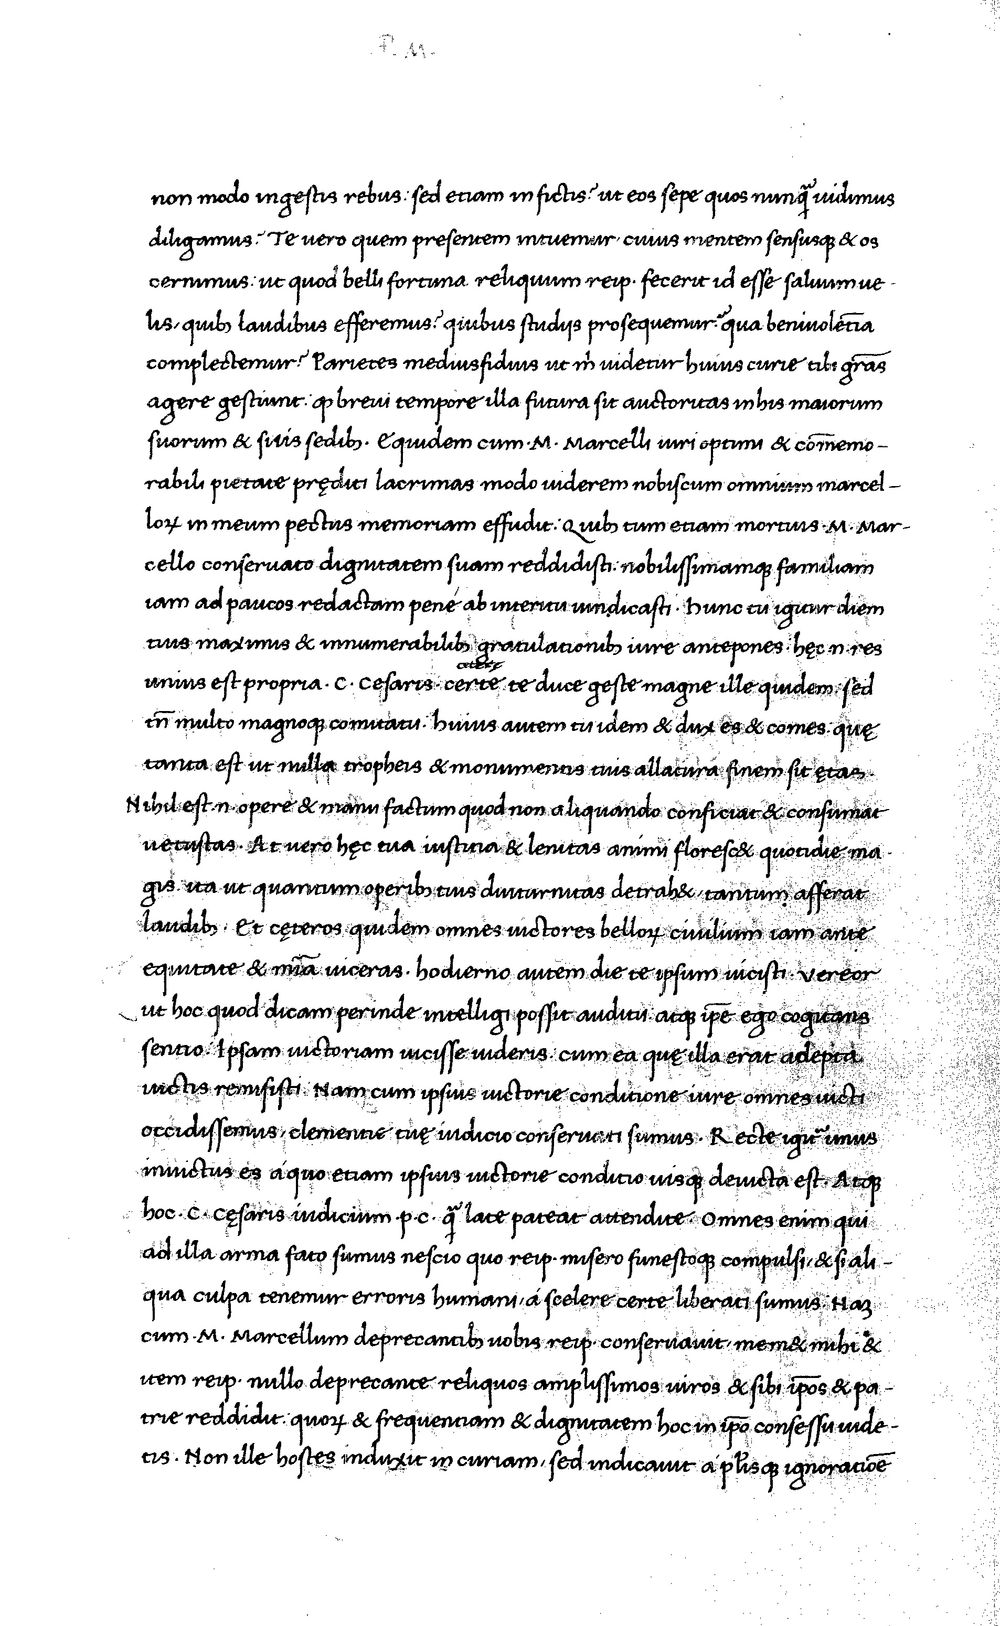 .P. M.
non modo in gestis rebus: sed etiam in fictis? ut eos sepe quos nunq̃ uidimus
diligamus? Te uero quem presentem intuemur: cuius mentem sensusq; & os
cernimus: ut quod belli fortuna reliquum reip. fecerit id esse saluum ue-
lis, quib; laudibus efferemus? quibus studijs prosequemur? qua beniuolētia
complectemur? Parietes mediusfidius ut m̄ uidetur huius curie tibi gr̄as
agere gestiunt: ꝙ breui tempore illa futura sit auctoritas in his maiorum
suorum & suis sedib;. Equidem cum .M. Marcelli uiri optimi & com̄emo-
rabili pietate pręditi lacrimas modo uiderem nobiscum omnium marcel-
loꝝ in meum pectus memoriam effudit: Quib; tum etiam mortuis .M. Mar-
cello conseruato dignitatem suam reddidisti: nobilissimamq; familiam
iam ad paucos redactam pene ab interitu uindicasti. Hunc tu igitur diem
tuis maximis & innumerabilib; gratulationib; iure antepones. hęc .n. res
unius est propria. C. Cesaris. certe te duce geste magne ille quidem: sed
tn̄ multo magnoq; comitatu. Huius autem tu idem & dux es & comes: quę
tanta est ut nulla tropheis & monumentis tuis allatura finem sit ętas.
Nihil est .n. opere & manu factum quod non aliquando conficiat & consumat
uetustas. At uero hęc tua iustitia & lenitas animi floresc& quotidie ma-
gis. ita ut quantum operib; tuis diuturnitas detrah&, tantum afferat
laudib;. Et cęteros quidem omnes uictores belloꝝ ciuilium iam ante
equitate & mīa uiceras. hodierno autem die te ipsum uicisti. Vereor
ut hoc quod dicam perinde intelligi possit auditu. atq; ip̄e ego cogitans
sentio. Ipsam uictoriam uicisse uideris: cum ea quę illa erat adepta
uictis remisisti. Nam cum ipsius uictorie conditione iure omnes uicti
occidissemus, clementie tuę iudicio conseruati sumus. Recte igit̃ unus
inuictus es a quo etiam ipsius uictorie conditio uisq; deuicta est. Atq;
hoc .C. Cęsaris iudicium .p.c. q̃ late pateat attendite. Omnes enim qui
ad illa arma fato sumus nescio quo reip. misero funestoq; compulsi, & si ali-
qua culpa tenemur erroris humani, a scelere certe liberati sumus. Naꝫ
cum .M. Marcellum deprecantib; uobis reip. conseruauit. mem& mihi &
item reip. nullo deprecante reliquos amplissimos uiros & sibi ip̄os & pa-
trie reddidit: quoꝝ & frequentiam & dignitatem hoc in ip̄o consessu uide-
tis. Non ille hostes induxit in curiam, sed iudicauit a pl̃isq; ignoratiōe